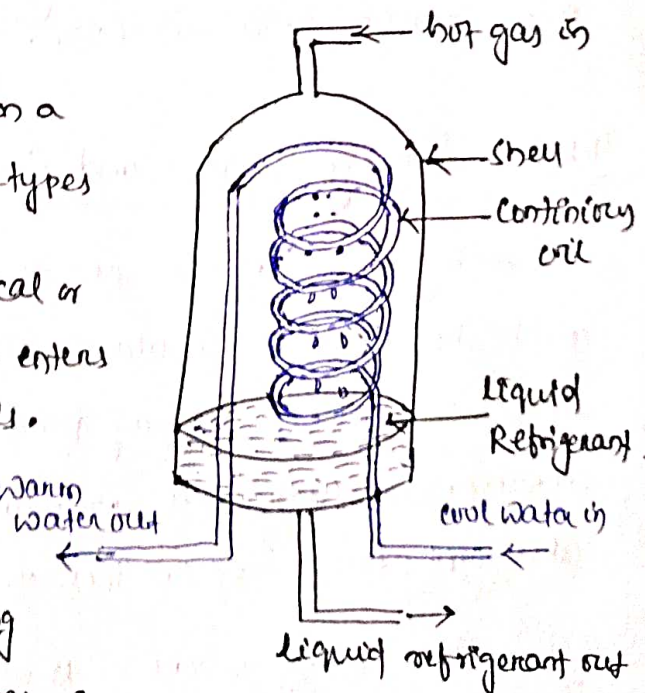 hot gas in
n a
shell
types
Continiouy
coil
cal or
enters
s.
liquid
Refrigerant
warm
water out
cool wata in
g
liquid refrigerant out